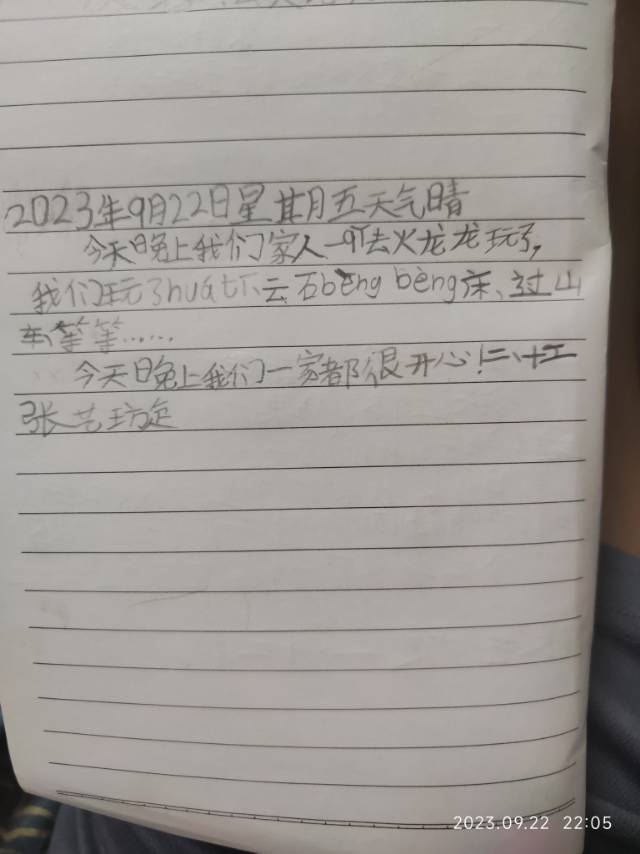 2023年9月22日星期五天气晴
今天晚上我们家人一起去火龙龙玩了,
我们玩了huá 云、bèng bèng床、过山
车、等等……
今天晚上我们一家都很开心!
张艺璇
2023.09.22 22:05